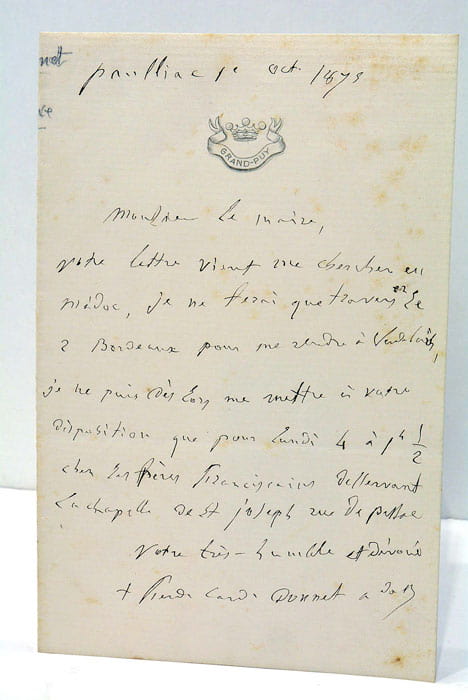 pauilliac 1e oct. 1875
GRAND-PUY
Monsieur le maire,
votre lettre vient me chercher en
médoc, je ne ferai que traverser le
2 Bordeaux pour me rendre à
je ne puis dès lors me mettre à votre
disposition que pour lundi 4 à 1h 1/2
chez les frères franciscains desservant
la chapelle de St joseph rue de pessac
votre très-humble et dévoué
+ ferd. card. Donnet a de B